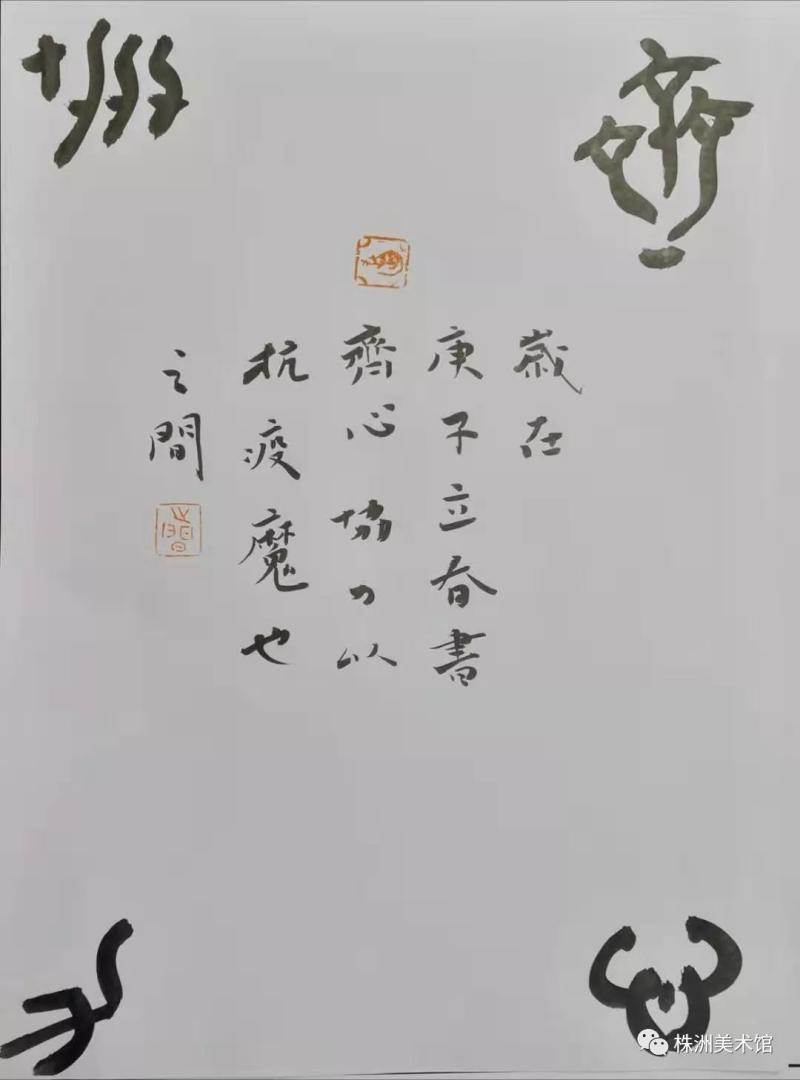 齊
心
歲在
庚子立春書
齊心協力以
抗疫魔也
之間
之間
協
力
株洲美术馆